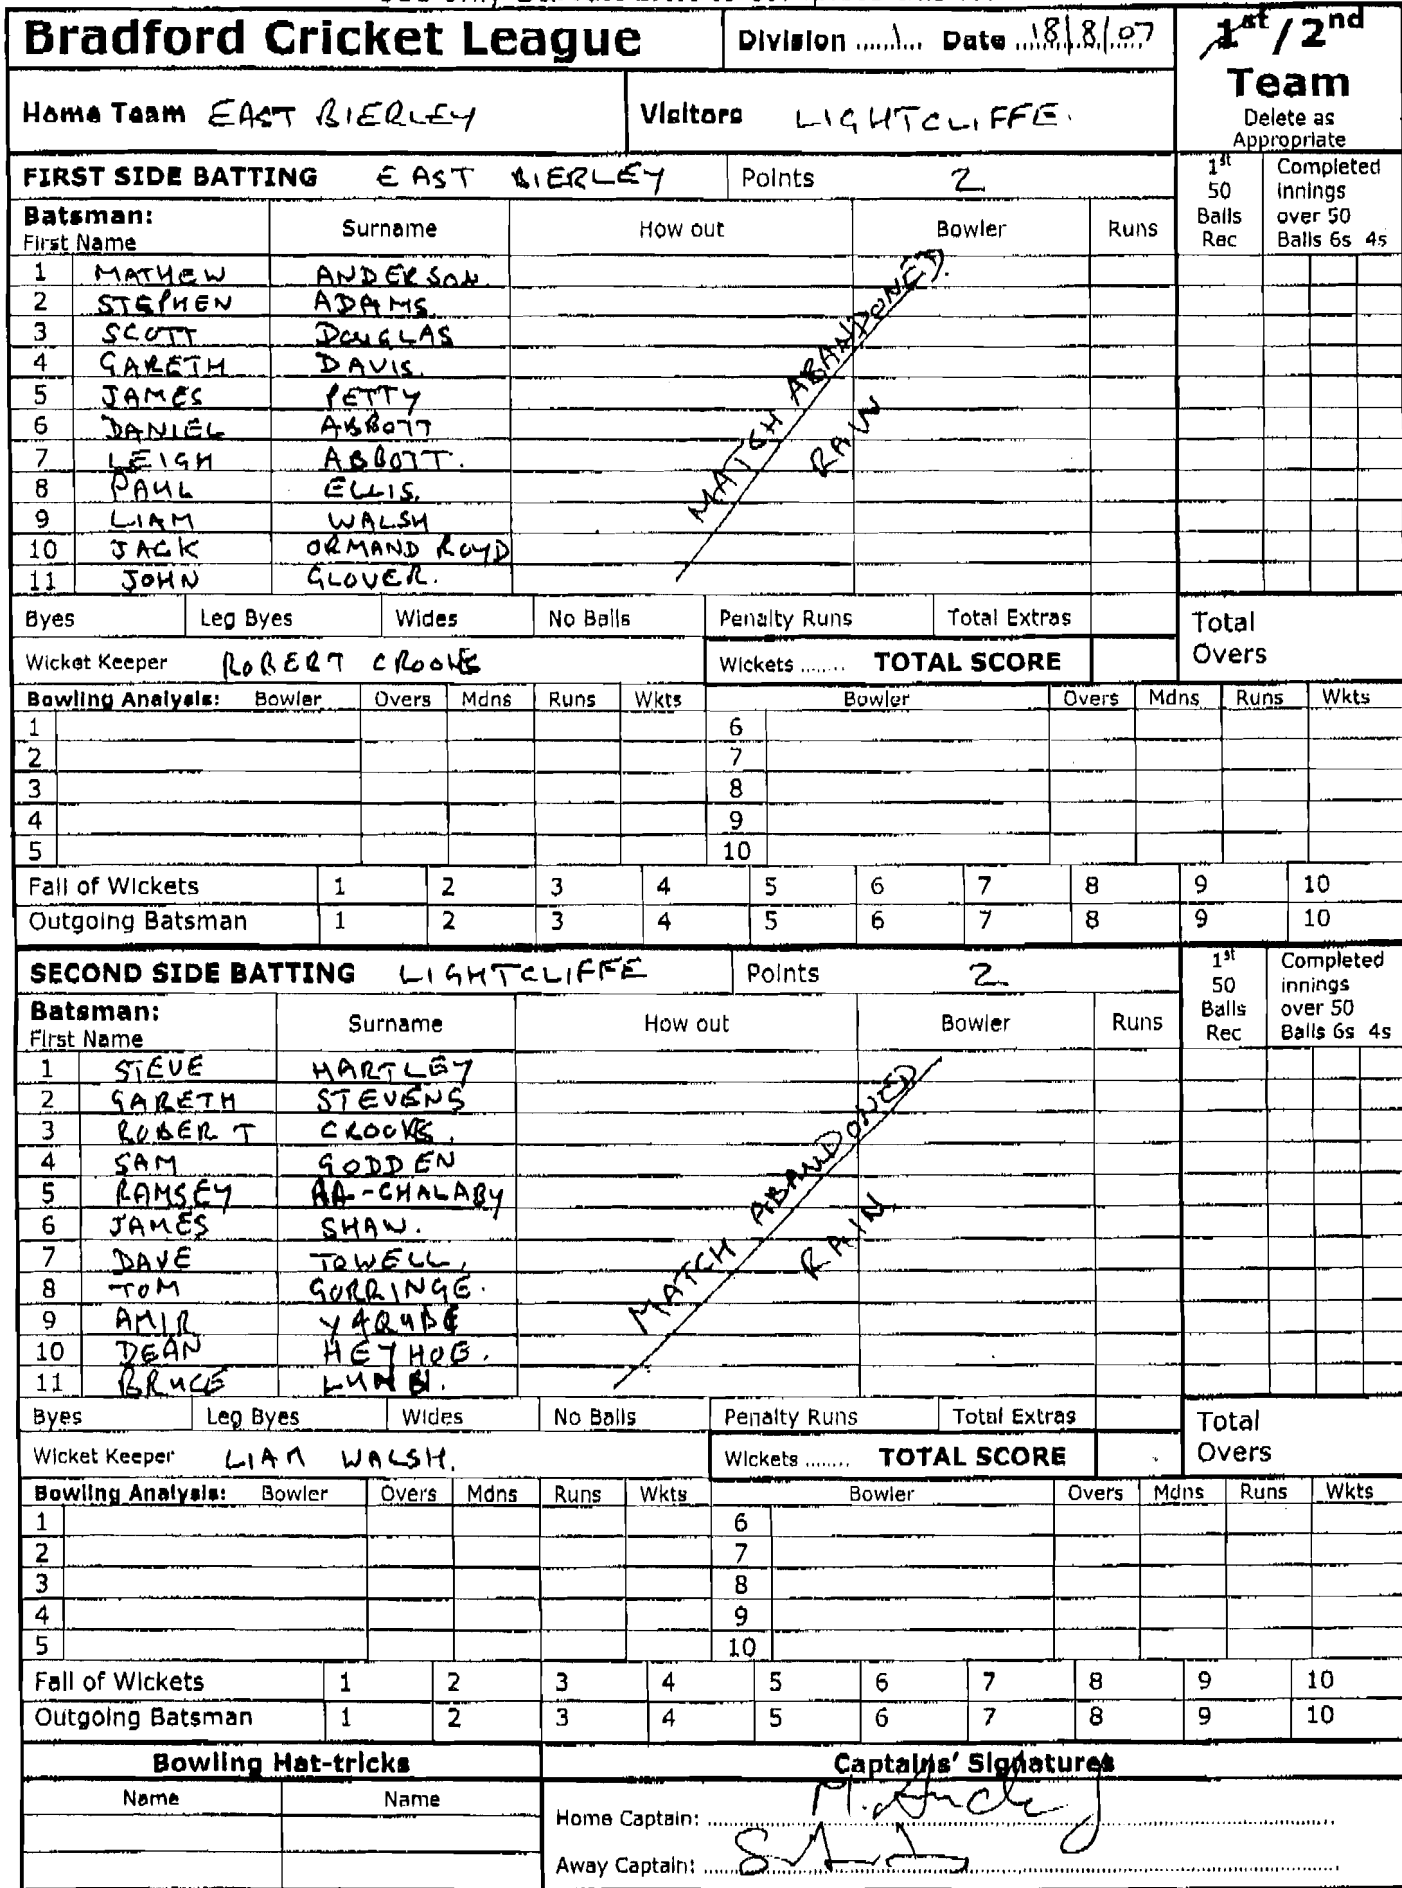 Bradford Cricket League
Division ...1... Date 18/8/07
1st / 2nd
Team
Delete as
Appropriate
Home Team EAST BIERLEY
Visitors LIGHTCLIFFE.
FIRST SIDE BATTING EAST BIERLEY Points 2
1st 50 Balls Rec
Completed innings over 50 Balls 6s 4s
Batsman:
First Name Surname How out Bowler Runs
1 MATHEW ANDERSON.
2 STEPHEN ADAMS.
3 SCOTT DOUGLAS
4 GARETH DAVIS.
5 JAMES PETTY
6 DANIEL ABBOTT
7 LEIGH ABBOTT.
8 PAUL ELLIS.
9 LIAM WALSH
10 JACK ORMAND ROYD
11 JOHN GLOVER.
MATCH ABANDONED.
RAIN
Byes Leg Byes Wides No Balls Penalty Runs Total Extras
Total Overs
Wicket Keeper ROBERT CROOKS
Wickets ....... TOTAL SCORE
Bowling Analysis: Bowler Overs Mdns Runs Wkts Bowler Overs Mdns Runs Wkts
1 6
2 7
3 8
4 9
5 10
Fall of Wickets 1 2 3 4 5 6 7 8 9 10
Outgoing Batsman 1 2 3 4 5 6 7 8 9 10
SECOND SIDE BATTING LIGHTCLIFFE Points 2
1st 50 Balls Rec
Completed innings over 50 Balls 6s 4s
Batsman:
First Name Surname How out Bowler Runs
1 STEVE HARTLEY
2 GARETH STEVENS
3 ROBERT CROOKS.
4 SAM GODDEN
5 RAMSEY AA-CHALABY
6 JAMES SHAW.
7 DAVE TOWELL.
8 TOM GURRINGE.
9 AMIR YAQUBE
10 DEAN HEYHOE.
11 BRUCE
MATCH ABANDONED
RAIN
Byes Leg Byes Wides No Balls Penalty Runs Total Extras
Total Overs
Wicket Keeper LIAM WALSH.
Wickets ........ TOTAL SCORE
Bowling Analysis: Bowler Overs Mdns Runs Wkts Bowler Overs Mdns Runs Wkts
1 6
2 7
3 8
4 9
5 10
Fall of Wickets 1 2 3 4 5 6 7 8 9 10
Outgoing Batsman 1 2 3 4 5 6 7 8 9 10
Bowling Hat-tricks
Name Name
Captains' Signatures
Home Captain:
Away Captain: